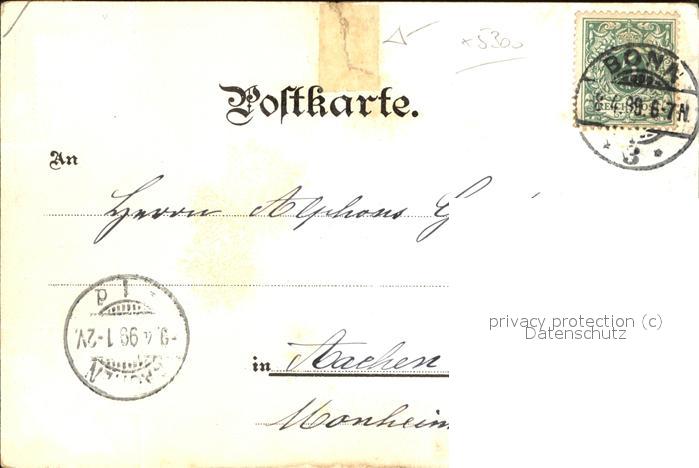 +5300
BONN
8.4.99. 6-7N
REICHSPOST
Postkarte.
An
Herrn Alphons G
1 d
-9.4.99 1-2V.
privacy protection (c)
Datenschutz
in Aachen
Monheim